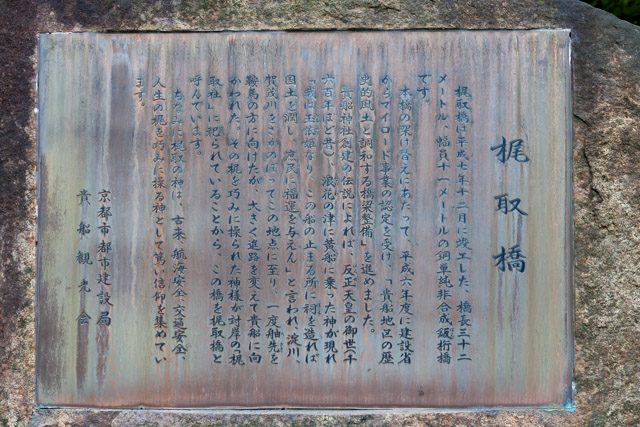 梶取橋
梶取橋は平成七年十二月に竣工した、橋長三十二
メートル、幅員十一メートルの鋼単純非合成鈑桁橋
です。
本橋の架け替えにあたって、平成六年度に建設省
からマイロード事業の認定を受け、「貴船地区の歴
史的風土と調和する橋梁整備」を進めました。
貴船神社創建の伝説によれば、反正天皇の御世(千
六百年ほど昔)、浪花の津に黄船に乗った神が現れ
「我は玉依姫なり、この船の止まる所に祠を造れば
国土を潤し、庶民に福運を与えん」と言われ、淀川、
賀茂川をさかのぼってこの地点に至り、一度舳先を
鞍馬の方に向けたが、大きく進路を変えて貴船に向
かわれた。その梶を巧みに操られた神様が対岸の梶
取社」に祀られていることから、この橋を梶取橋と
呼んでいます。
ちなみに梶取の神は、古来、航海安全、交通安全、
人生の梶を巧みに操る神として篤い信仰を集めてい
ます。
京都市都市建設局
貴船観光会